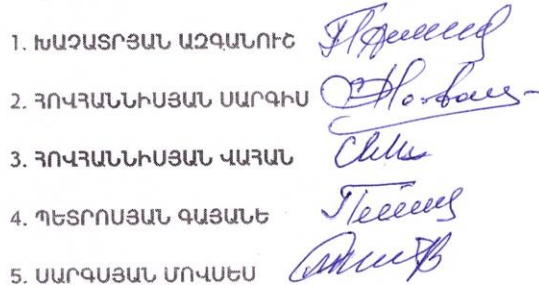 1. ԽԱՉԱՏՐՅԱՆ ԱԶԳԱՆՈՒՇ
2. ՀՈՎՀԱՆՆԻՍՅԱՆ ՍԱՐԳԻՍ
3. ՀՈՎՀԱՆՆԻՍՅԱՆ ՎԱՀԱՆ
4. ՊԵՏՐՈՍՅԱՆ ԳԱՅԱՆԵ
5. ՍԱՐԳՍՅԱՆ ՄՈՎՍԵՍ